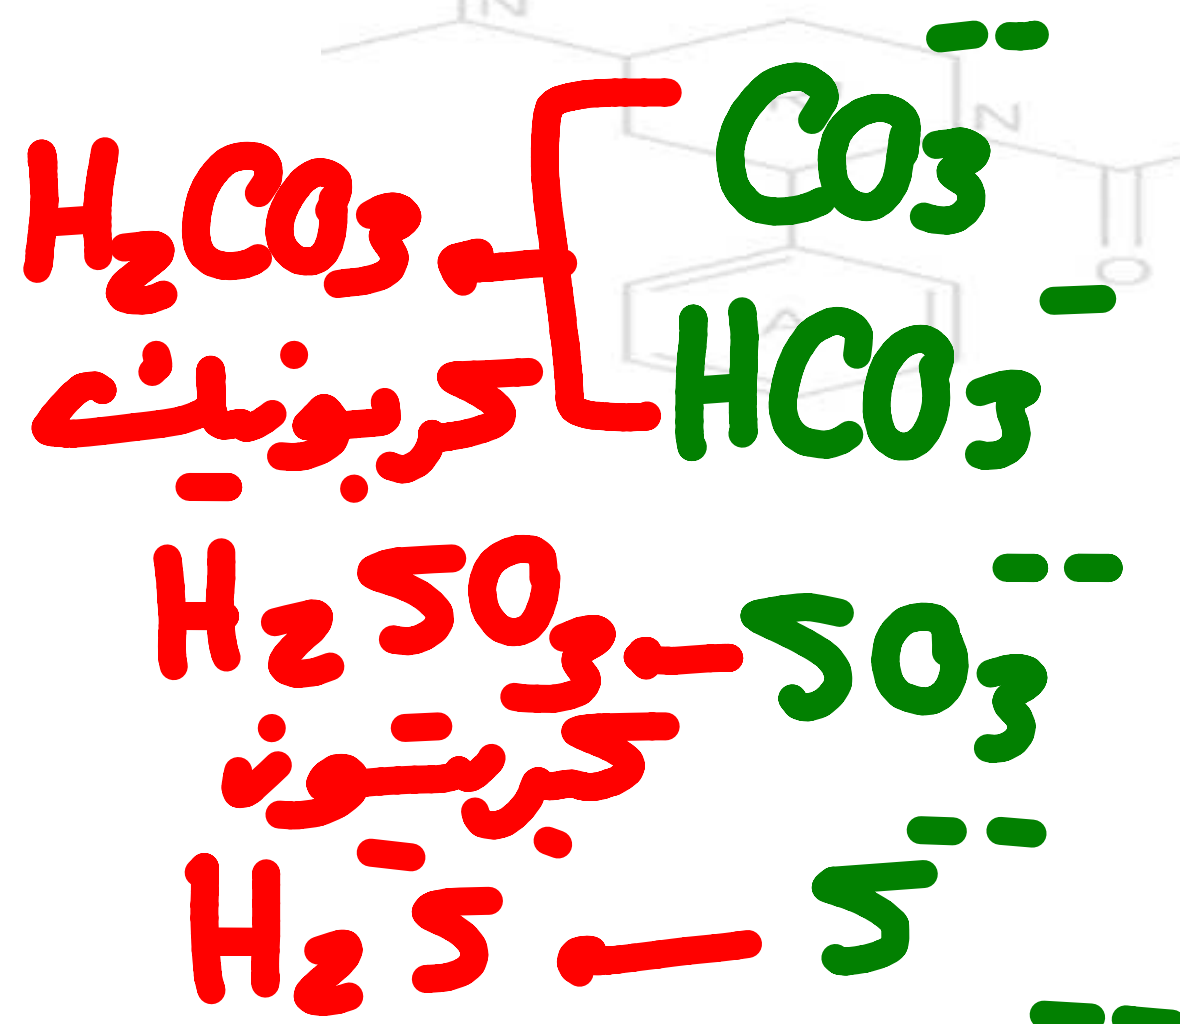 CO₃⁻⁻
H₂CO₃
HCO₃⁻
كربونيك
H₂SO₃ SO₃⁻⁻
كبريتوز
H₂S S⁻⁻